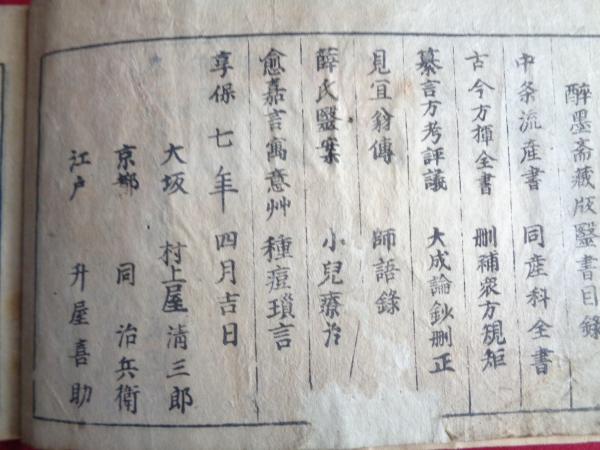 醉墨斎藏版醫書目錄
中条流産書 同産科全書
古今方揮全書 刪補衆方規矩
纂言方考評議 大成論鈔刪正
見宜翁傳 師語錄
薛氏醫案 小兒療治
愈嘉言寓意艸 種痘瑣言
享保七年四月吉日
大坂 村上屋淸三郎
京都 同治兵衛
江戸 升屋喜助